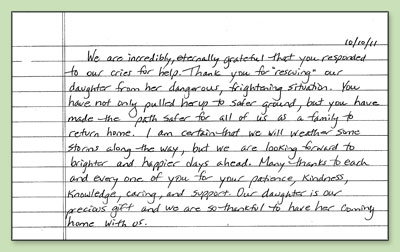 10/10/11
We are incredibly, eternally grateful that you responded
to our cries for help. Thank you for "rescuing" our
daughter from her dangerous, frightening situation. You
have not only pulled her up to safer ground, but you have
made the path safer for all of us as a family to
return home. I am certain that we will weather some
storms along the way, but we are looking forward to
brighter and happier days ahead. Many thanks to each
and every one of you for your patience, kindness,
knowledge, caring, and support. Our daughter is our
precious gift and we are so thankful to have her coming
home with us.